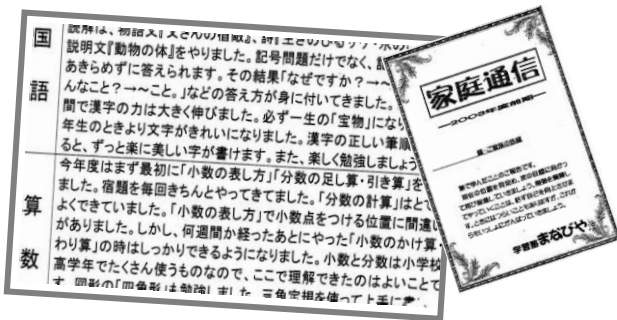 国語
読解は、物語文『父さんの宿敵』、詩『
説明文『動物の体』をやりました。記号問題だけでなく、
あきらめずに答えられます。その結果「なぜですか？→～
んなこと？→～こと。」などの答え方が身に付いてきました。
間で漢字の力は大きく伸びました。必ず一生の「宝物」になり
年生のときより文字がきれいになりました。漢字の正しい筆順
ると、ずっと楽に美しい字が書けます。また、楽しく勉強しましょう
算数
今年度はまず最初に「小数の表し方」「分数の足し算・引き算」を
ました。宿題を毎回きちんとやってきてました。「分数の計算」はとて
よくできていました。「小数の表し方」で小数点をつける位置に間違い
がありました。しかし、何週間か経ったあとにやった「小数のかけ算・
わり算」の時はしっかりできるようになりました。小数と分数は小学校
高学年でたくさん使うものなので、ここで理解できたのはよいことで
す。図形の「四角形」も勉強しました。三角定規を使って上手に書
家庭通信
―2009年度前期―
学習塾 まなびや